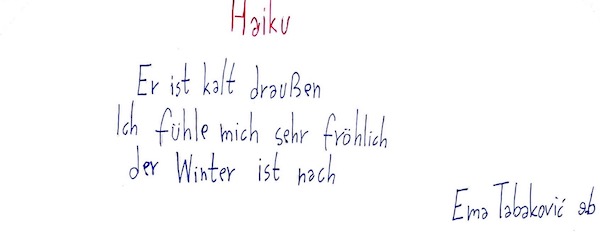 Haiku
Er ist kalt draußen
Ich fühle mich sehr fröhlich
der Winter ist nach
Ema Tabaković 9b